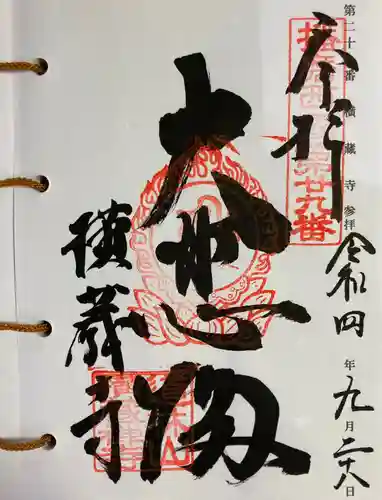 第二十一番 横蔵寺 参拝 令和四年九月二十八日
奉拝
第廿九番
大悲殿
横蔵寺